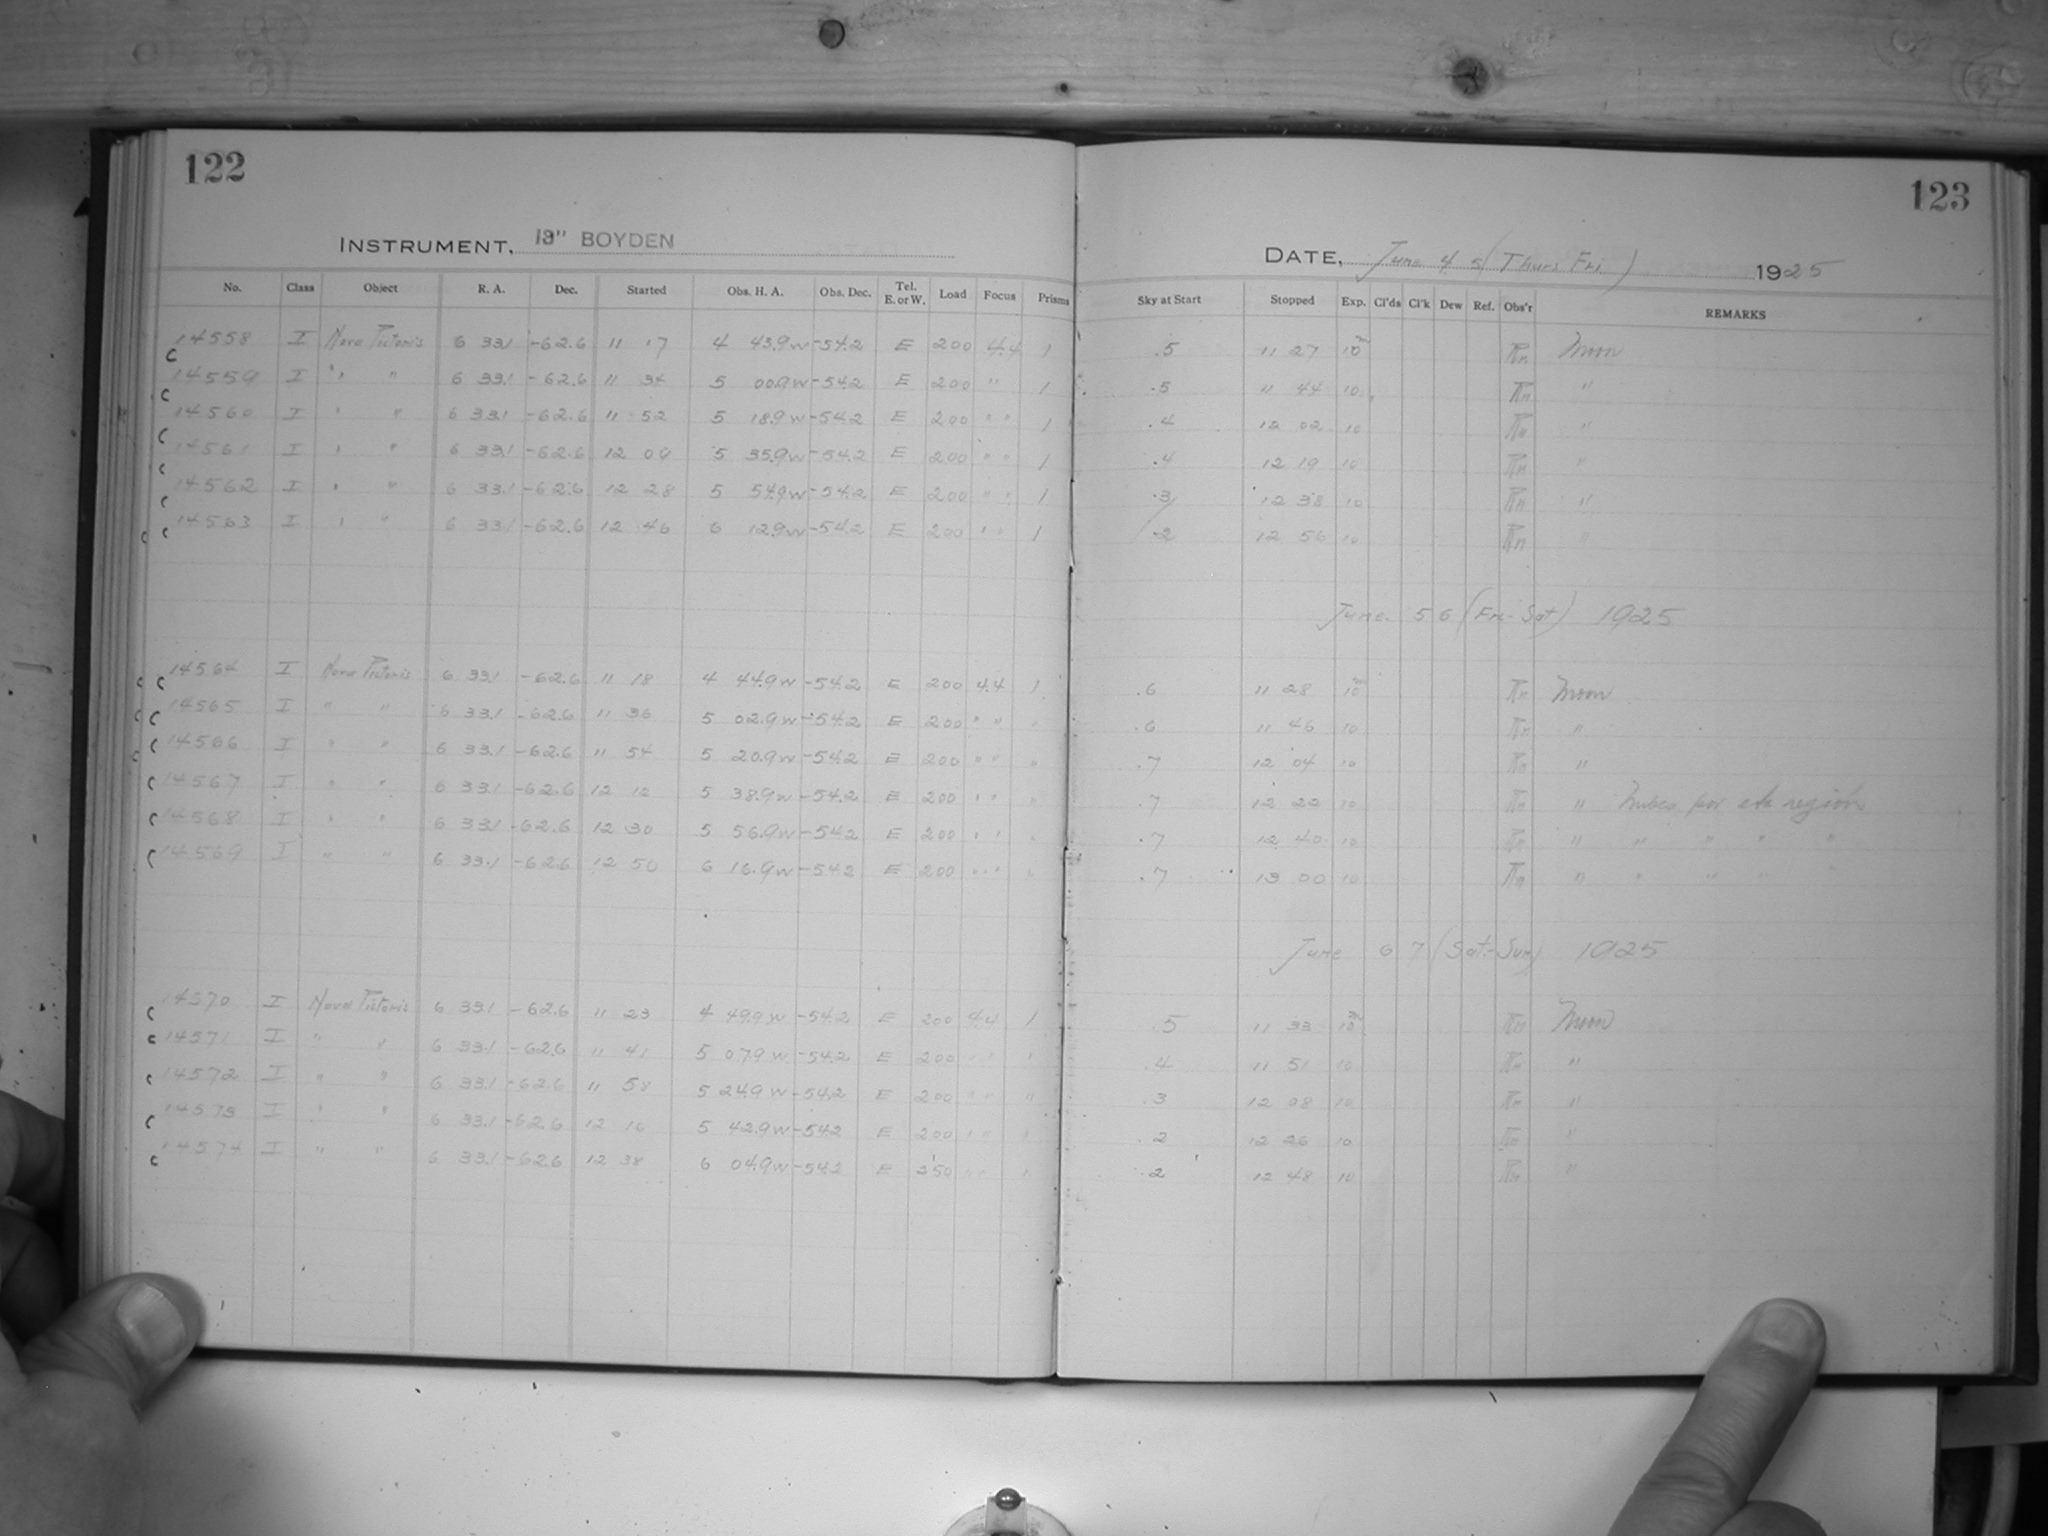 122
INSTRUMENT, 13" BOYDEN
No. Class Object R. A. Dec. Started Obs. H. A. Obs. Dec. Tel. E. or W. Load Focus Prisms
14558 I Nova Pictoris 6 33.1 -62.6 11 17 4 43.9 W -54.2 E 200 4.4 1
14559 I " " 6 33.1 -62.6 11 34 5 00.9 W -54.2 E 200 " 1
14560 I " " 6 33.1 -62.6 11 52 5 18.9 W -54.2 E 200 " " 1
14561 I " " 6 33.1 -62.6 12 09 5 35.9 W -54.2 E 200 " " 1
14562 I " " 6 33.1 -62.6 12 28 5 54.9 W -54.2 E 200 " " 1
14563 I " " 6 33.1 -62.6 12 46 6 12.9 W -54.2 E 200 " " 1
14564 I Nova Pictoris 6 33.1 -62.6 11 18 4 44.9 W -54.2 E 200 4.4 1
14565 I " " 6 33.1 -62.6 11 36 5 02.9 W -54.2 E 200 " " "
14566 I " " 6 33.1 -62.6 11 54 5 20.9 W -54.2 E 200 " " "
14567 I " " 6 33.1 -62.6 12 12 5 38.9 W -54.2 E 200 " " "
14568 I " " 6 33.1 -62.6 12 30 5 56.9 W -54.2 E 200 " " "
14569 I " " 6 33.1 -62.6 12 50 6 16.9 W -54.2 E 200 " " "
14570 I Nova Pictoris 6 33.1 -62.6 11 23 4 49.9 W -54.2 E 200 4.4 1
14571 I " " 6 33.1 -62.6 11 41 5 07.9 W -54.2 E 200 " " "
14572 I " " 6 33.1 -62.6 11 58 5 24.9 W -54.2 E 200 " " "
14573 I " " 6 33.1 -62.6 12 16 5 42.9 W -54.2 E 200 " " "
14574 I " " 6 33.1 -62.6 12 38 6 04.9 W -54.2 E 250 " " "
123
DATE, June 4 5 (Thurs Fri) 1925
Sky at Start Stopped Exp. Cl'ds Cl'k Dew Ref. Obs'r REMARKS
.5 11 27 10m Rn Moon
.5 11 44 10 Rn "
.4 12 02 10 Rn "
.4 12 19 10 Rn "
.3 12 38 10 Rn "
.2 12 56 10 Rn "
June 5 6 (Fri-Sat) 1925
.6 11 28 10m Rn Moon
.6 11 46 10 Rn "
.7 12 04 10 Rn "
.7 12 22 10 Rn " Nubes por esta región
.7 12 40 10 Rn " " " " "
.7 13 00 10 Rn " " " " "
June 6 7 (Sat-Sun) 1925
.5 11 33 10m Rn Moon
.4 11 51 10 Rn "
.3 12 08 10 Rn "
.2 12 26 10 Rn "
.2 12 48 10 Rn "